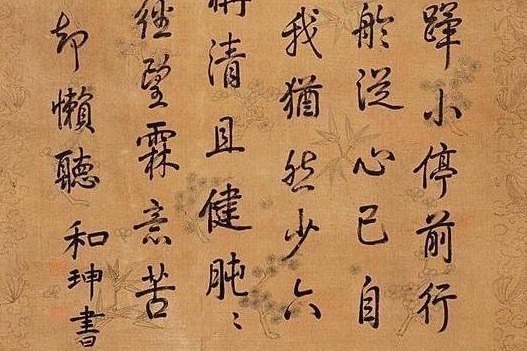 蹕小停前行
於從心已自
我猶然少六
清且健肫〻
經望霖意苦
却懶聽
和珅書